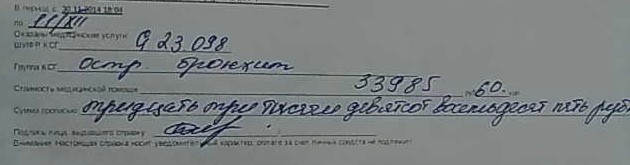 В период с 30.11.2014 18:04
по 11/XII
Оказаны медицинские услуги
Шифр КСГ G 23.098
Группа КСГ остр. бронхит
Стоимость медицинской помощи 33985 руб 60. коп
Сумма прописью тридцать три тысячи девятьсот восемьдесят пять руб
Подпись лица, выдавшего справку
Внимание. Настоящая справка носит уведомительный характер, оплате за счет личных средств не подлежит!